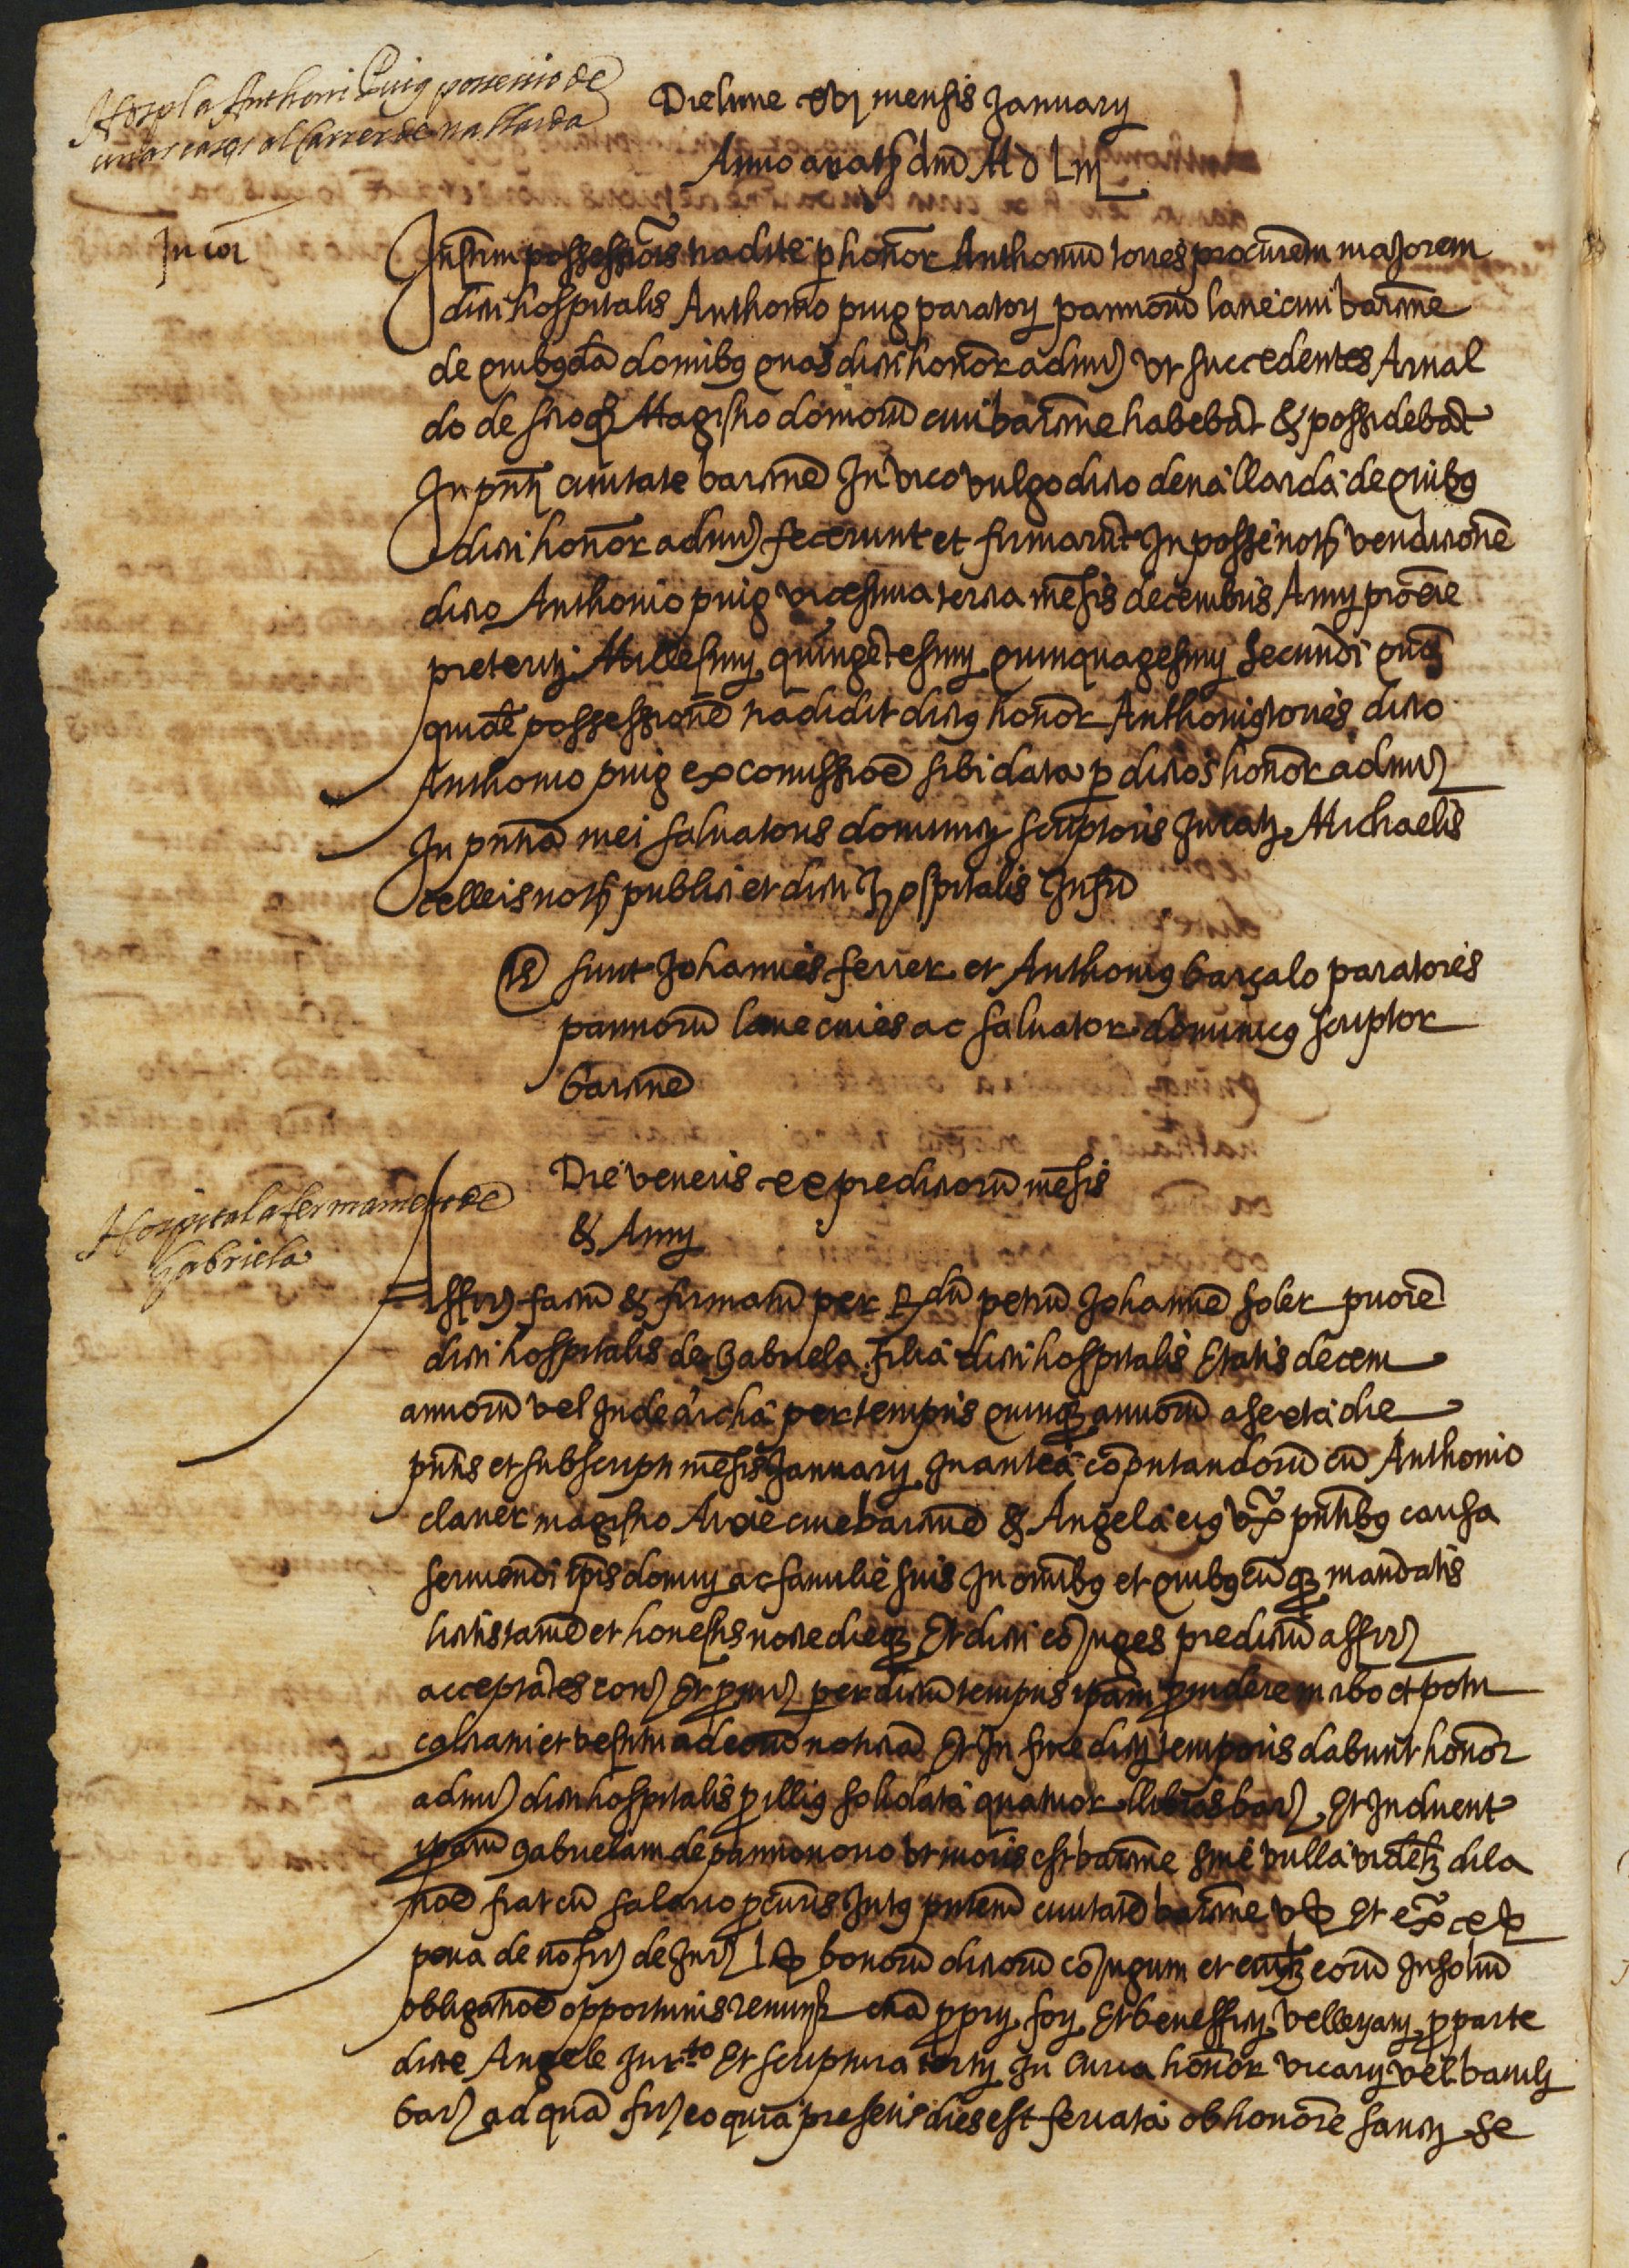 Hospl a Anthoni Puig possessio de
unas cases al Carrer de na llarda
Die lune xvj mensis Januarij
Anno a natj dnj M D Liij
In cor
Instrm possessiois tradite p honor Anthoniu torres procurem majorem
dicti hospitalis Anthonio puig paratorj pannoru lane civi barcne
de quibusda domibus quas dicti honor admjs ut succedentes Arnal
do de siroq Magistro domoru civi barcne habebat & possidebat
In pntj civitate barcne In vico vulgo dicto de na llarda de quibus
dicti honor admjs fecerunt et firmarut In posse notj venditione
dicto Anthonio puig vicesima tercia mesis decembris Annj proxe
preteritj Millesimj quingetesimj quinquagesimj secundi qua
quide possessione tradidit dictus honor Anthonius torres dicto
Anthonio puig ex comissioe sibi data p dictos honor admjs
In pntia mei salvatoris dominicj scriptoris Juratj Michaelis
celleis notj publici et dicti Hospitalis Infru
Ts sunt Johannes ferrer et Anthonius barçalo paratores
pannoru lane cives ac salvator dominicus scriptor
barcne
Die veneris xx predictoru mesis
& Annj
Hospital afermament de
Gabriela
Affirm factu & firmatu per Rdu petru Johanne soler priore
dicti hospitalis de Gabriela filia dicti hospitalis Etatis decem
annoru vel Inde circha per tempus quinq annoru a sexta die
pntis et subscripti mesis Januarij In antea coputandoru cu Anthonio
claver magistro Axie cive barcne & Angela eius ux pntibus causa
serviendi ipis domuj ac familie suis In omibus et quibuscuq mandatis
licitis tame et honestis nocte dieq Et dicti cojuges predictu affirm
acceptates cov Et pmj per dictu tempus ipam providere in cibo et potu
calciatu et vestitu ad eoru noticia Et In fine dicti temporis dabunt honor
admjs dicti hospitalis p illius solidata quatuor llibras bar Et Induent
ipam gabrielam de panno novo ut moris est barcne sine vulla videtz dila
tioe fiat cu salario pcuris Intus pntem civitate barcne v s Et ex x s
pena de no fir de Jur l s bonoru dictoru cojugum et cujtz eoru Insolu
obligatioe opportunis renunt etia pprij forj Et beneffitij velleyanj p parte
dicte Angele Jurto Et scriptura tertij In curia honor vicarij vel bajulj
bar ad qua fir eo quia presens dies est feriata ob honore sanctj se